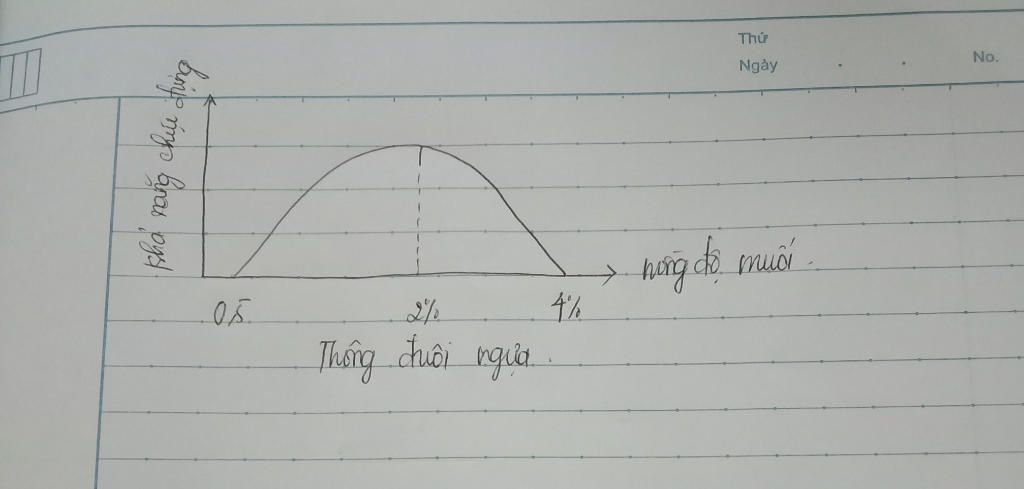 Thứ
Ngày . .
No.
khả năng chịu đựng
nồng độ muối.
0,5
2%
4%
Thông đuôi ngựa.